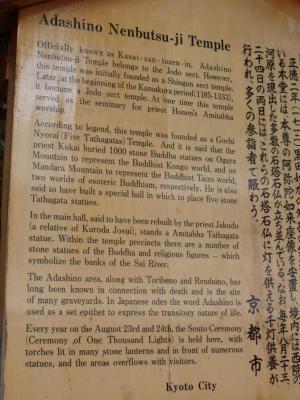 Adashino Nenbutsu-ji Temple
Officially known as Kasai-zan-tozen-in, Adashino
Nenbutsu-ji Temple belongs to the Jodo sect. However,
this temple was initially founded as a Shingon sect temple.
Later, at the beginning of the Kamakura period (1185-1333),
it became a Jodo sect temple. At one time this temple
served as the seminary for priest Honen's Amitabha
worship.
According to legend, this temple was founded as a Gochi
Nyorai (Five Tathagatas) Temple. And it is said that the
priest Kukai buried 1000 stone Buddha statues on Ogura
Mountain to represent the Buddhist Kongo world, and on
Mandara Mountain to represent the Buddhist Taizo world,
two worlds of esoteric Buddhism, respectively. He is also
said to have built a special hall in which to place five stone
Tathagata statues.
In the main hall, said to have been rebuilt by the priest Jakudo
(a relative of Kuroda Josui), stands a Amitabha Tathagata
statue. Within the temple precincts there are a number of
stone statues of the Buddha and religious figures – which
symbolize the banks of the Sai River.
The Adashino area, along with Toribeno and Rendaino, has
long been known in connection with death and is the site
of many graveyards. In Japanese odes the word Adashino is
used as a set epithet to express the transitory nature of life.
Every year on the August 23rd and 24th, the Sento Ceremony
(Ceremony of One Thousand Lights) is held here, with
torches lit in many stone lanterns and in front of numerous
statues, and the areas overflows with visitors.
Kyoto City
いる本堂には本尊の阿弥陀如来座像を安置し、境内には西院の
河原を現出した多数の石塔石仏が立ち並んでいる。なお毎年八月二十三、
二十四日の両日にはこれらの石塔石仏に灯を供える千灯供養が
行われ、多くの参詣者で賑わう。
京都市